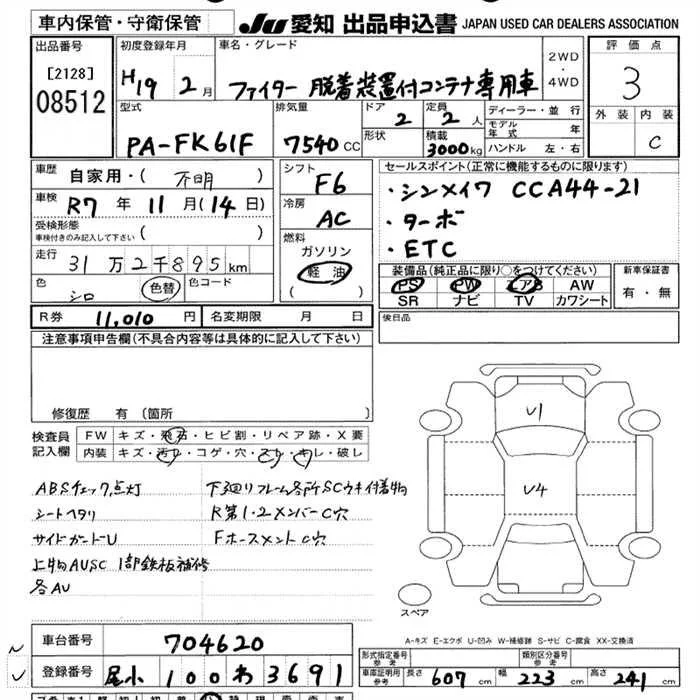 車内保管・守衛保管
JU 愛知 出品申込書 JAPAN USED CAR DEALERS ASSOCIATION
出品番号
[2128]
08512
初度登録年月
H19 2月
車名・グレード
ファイター 脱着装置付コンテナ専用車
2WD
・
4WD
評価点
3
外装 内装
C
型式
PA-FK61F
排気量
7540 CC
ドア
2
定員
2人
形状
積載
3000kg
ディーラー・並行
モデル年式 年
ハンドル 左・右
車歴
自家用・( 不明 )
車検
R7 年 11 月 (14日)
受検形態
車検付きのみ記入して下さい ( )
走行
31万2千895km
色
シロ
色替
色コード
シフト
F6
冷房
AC
燃料
ガソリン
軽油
( )
セールスポイント(正常に機能するものに限ります)
・シンメイワ CCA44-21
・ターボ
・ETC
装備品(純正品に限り○をつけてください)
PS PW エアB AW
SR ナビ TV カワシート
新車保証書
有・無
R券 11,010 円
名変期限 月 日
後日品
注意事項申告欄(不具合内容等は具体的に記入して下さい)
修復歴 有 〔箇所
検査員
記入欄
FW キズ・飛石・ヒビ割・リペア跡・X要
内装 キズ・汚れ・コゲ・穴・スレ・キレ・破し
ABSチェック点灯
シートヘタリ
サイドガードU
上物AUSC 1部鉄板補修
各AU
下回りフレーム各所SCウキ付着物
R第1・2メンバーC穴
FホースメントC穴
U1
U4
スペア
A-キズ E-エクボ U-凹み W-補修跡 S-サビ C-腐食 XX-交換済
車台番号 704620
登録番号 尾小 100 わ 3691
形式指定番号
参考
類別区分番号
参考
車庫証明用
参考
長さ 607 cm
幅 223 cm
高さ 241 cm